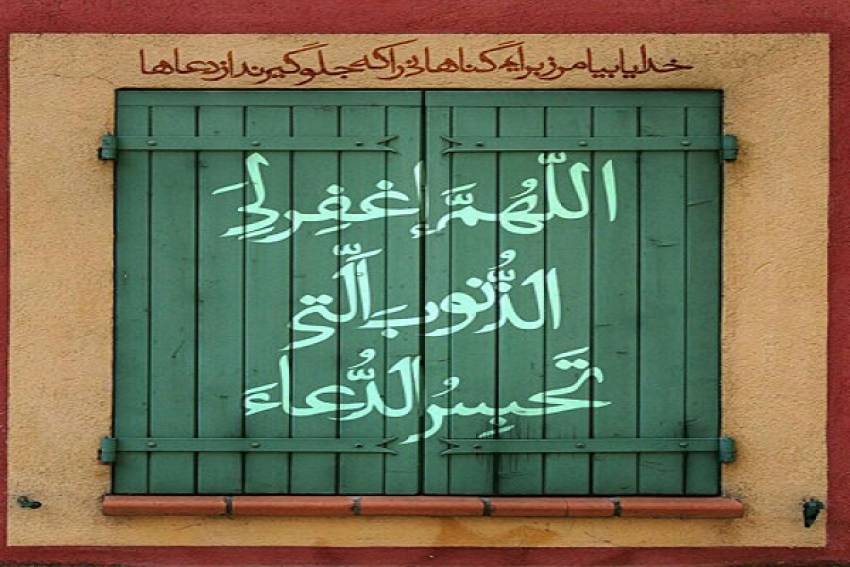 خدایا بیامرز برایم گناهانی را که جلوگیرند از دعاها
اللّهُمَّ إغفِر لِيَ
الذُّنوبَ الَّتي
تَحبِسُ الدُّعاءَ